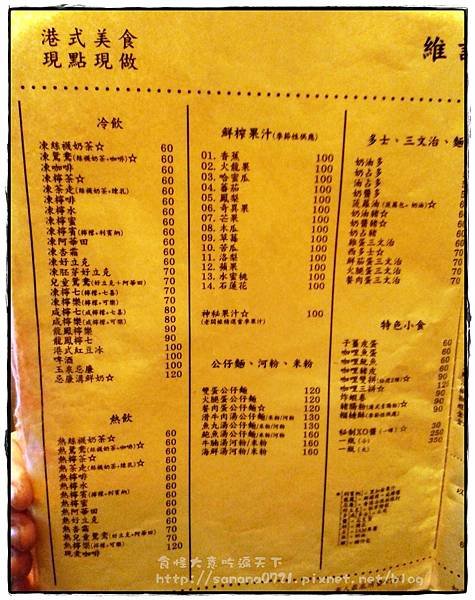 港式美食
現點現做
維
冷飲
凍絲襪奶茶☆ 60
凍鴛鴦(絲襪奶茶+咖啡)☆ 60
凍咖啡 60
凍檸茶☆ 60
凍茶走(絲襪奶茶+煉乳) 60
凍檸啡 60
凍檸水 60
凍檸蜜 60
凍檸賓(檸檬+利賓納) 60
凍阿華田 60
凍杏霜 60
凍好立克 60
凍胚芽好立克 70
兒童鴛鴦(好立克+阿華田) 70
凍檸七(檸檬+七喜) 70
凍檸樂(檸檬+可樂) 70
咸檸七(咸檸檬+七喜) 80
咸檸樂(咸檸檬+可樂) 80
龍鳳檸樂 90
龍鳳檸七 90
港式紅豆冰 90
啤酒 100
玉泉忌廉 100
忌廉溝鮮奶☆ 120
熱飲
熱絲襪奶茶☆ 60
熱鴛鴦(絲襪奶茶+咖啡)☆ 60
熱檸茶 60
熱茶走(絲襪奶茶+煉乳)☆ 60
熱咖啡 60
熱檸水 60
熱檸賓(檸檬+利賓納) 60
熱檸蜜 60
熱阿華田 60
熱好立克 60
熱杏霜 60
熱兒童鴛鴦(好立克+阿華田) 70
熱檸樂(檸檬+可樂) 70
現煮咖啡 120
鮮榨果汁(季節性供應)
01. 香蕉 100
02. 火龍果 100
03. 哈蜜瓜 100
04. 蕃茄 100
05. 鳳梨 100
06. 奇異果 100
07. 芒果 100
08. 木瓜 100
09. 草莓 100
10. 苦瓜 100
11. 洛梨 100
12. 蘋果 100
13. 水蜜桃 100
14. 石蓮花 100
神秘果汁☆ 100
(老闆娘精選當季果汁)
公仔麵、河粉、米粉
雙蛋公仔麵 120
火腿蛋公仔麵 120
餐肉蛋公仔麵☆ 120
滑牛肉湯公仔麵/河粉 130
魚丸湯公仔麵/河粉 130
鮑魚湯公仔麵/河粉 160
牛腩湯河粉/米粉 160
海鮮湯河粉/米粉 160
多士、三文治、麵
奶油多
奶占多
油占多
奶醬多
菠蘿油(菠蘿包+奶油)
奶油豬☆
奶醬豬☆
奶占豬
雞蛋三文治 60
西多士☆ 70
鮮茄蛋三文治 70
火腿蛋三文治 70
餐肉蛋三文治 70
特色小食
子薑皮蛋 60
咖哩魚蛋 60
咖哩魷魚 60
咖哩豬皮 60
咖哩雙拼 90
咖哩三拼☆ 90
炸蝦卷
豬腸粉
糯糬糍
秘制XO醬(一碟) 30
一瓶(小) 250
一瓶(大) 350
食怪大意吃遍天下
http://sanana0721.pixnet.net/blog